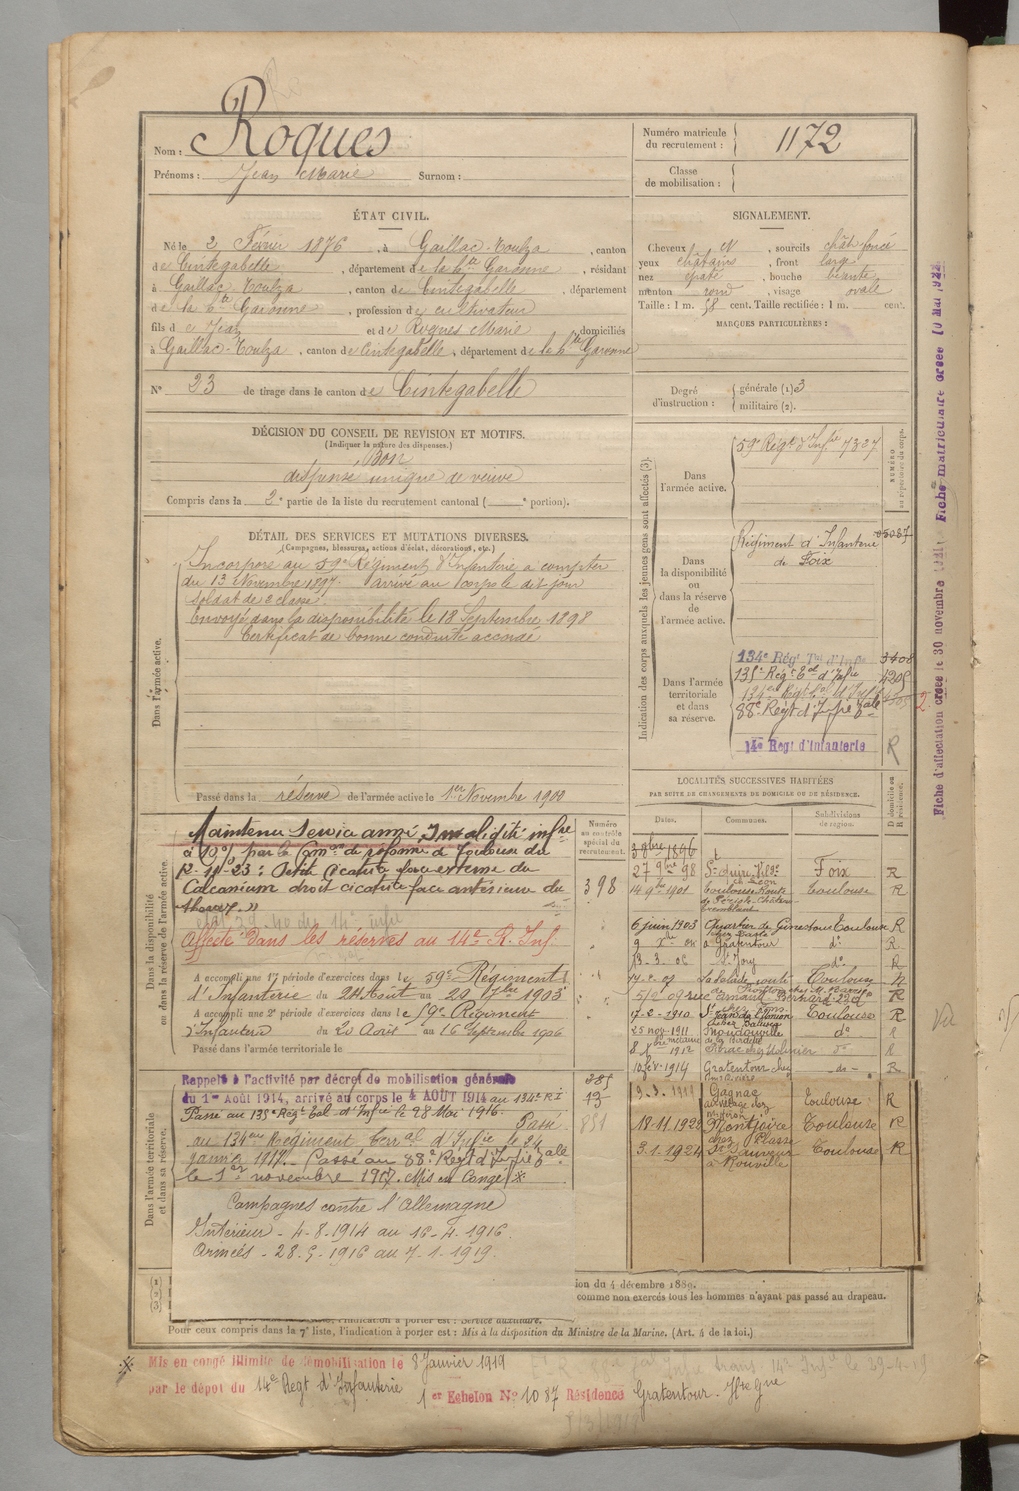 Nom : Roques
Prénoms : Jean Marie Surnom :
Numéro matricule du recrutement : 1172
Classe de mobilisation :
ÉTAT CIVIL.
Né le 2 Février 1876, à Gaillac-Toulza, canton
de Cintegabelle, département de la Hte Garonne, résidant
à Gaillac Toulza, canton de Cintegabelle, département
de la Hte Garonne, profession de cultivateur
fils de Jean et de Roques Marie, domiciliés
à Gaillac-Toulza, canton de Cintegabelle, département de la Hte Garonne
N° 23 de tirage dans le canton de Cintegabelle
SIGNALEMENT.
Cheveux N, sourcils chât foncé
yeux châtains, front large
nez épaté, bouche béante
menton rond, visage ovale
Taille : 1 m. 58 cent. Taille rectifiée : 1 m. cent.
MARQUES PARTICULIÈRES :
Degré d'instruction : générale (1) 3
militaire (2).
DÉCISION DU CONSEIL DE REVISION ET MOTIFS.
(Indiquer la nature des dispenses.)
Bon
dispensé unique de veuve
Compris dans la 2e partie de la liste du recrutement cantonal ( e portion).
DÉTAIL DES SERVICES ET MUTATIONS DIVERSES.
(Campagnes, blessures, actions d'éclat, décorations, etc.)
Dans l'armée active.
Incorporé au 59e Régiment d'Infanterie à compter
du 13 Novembre 1897. Arrivé au corps le dit jour
soldat de 2e classe.
Envoyé dans la disponibilité le 18 Septembre 1898
Certificat de bonne conduite accordé
Passé dans la réserve de l'armée active le 1er Novembre 1900
Indication des corps auxquels les jeunes gens sont affectés (3).
NUMÉRO au répertoire du corps.
Dans l'armée active.
59e Régt d'Infie 7337
Dans la disponibilité ou dans la réserve de l'armée active.
Régiment d'Infanterie de Foix
Dans l'armée territoriale et dans sa réserve.
134e Régt Tal d'Infie 3408
135e Régt Tal d'Infie 4205
88e Régt d'Infie Tale
14e Regt d'Infanterie R
LOCALITÉS SUCCESSIVES HABITÉES
PAR SUITE DE CHANGEMENTS DE DOMICILE OU DE RÉSIDENCE.
Dates. Communes. Subdivisions de région. D domicile ou R résidence.
27 9bre 98 Foix R
14 9bre 1901 Toulouse R
6 juin 1903 Toulouse R
à Gratentour do R
13-3-06 do R
Toulouse R
17-2-1910 Toulouse R
25 nov. 1911 Mondouville do R
1912 do R
10 fév. 1914 Gratentour chez R
Gagnac Toulouse R
18-11-1922 Montjoire Toulouse R
3.1.1924 St Sauveur Toulouse R
à Rouville
Dans la disponibilité ou dans la réserve de l'armée active.
Numéro au contrôle spécial du recrutement.
398
Maintenu service armé Invalidité infre
à 10% par la Comon de réforme de Toulouse du
Calcanéum droit cicatrice face antérieure du
Affecté dans les réserves au 14e R. Inf.
A accompli une 1re période d'exercices dans le 59e Régiment
d'Infanterie du 24 Août au 20 7bre 1903
A accompli une 2e période d'exercices dans le 59e Régiment
d'Infanterie du 20 Août au 16 Septembre 1906
Passé dans l'armée territoriale le
Dans l'armée territoriale et dans sa réserve.
Rappelé à l'activité par décret de mobilisation générale
du 1er Août 1914, arrivé au corps le 4 AOUT 1914 au 134e R I
Passé au 135e Régt Tal d'Infie le 28 Mai 1916. Passé
au 134ème Régiment Terral d'Infie le 24
janvier 1917. Passé au 88e Régt d'Infie Tale
le 1er novembre 1917. Mis en Congé (*
Campagnes contre l'Allemagne
Intérieur - 4-8-1914 au 16-4-1916
Armées - 28.5-1916 au 7-1-1919.
ion du 4 décembre 1889.
comme non exercés tous les hommes n'ayant pas passé au drapeau.
Pour ceux compris dans la 7e liste, l'indication à porter est : Mis à la disposition du Ministre de la Marine. (Art. 4 de la loi.)
Mis en congé illimité de démobilisation le 8 Janvier 1919
par le dépôt du 14e Regt d'Infanterie 1er Echelon N° 1087 Résidence Gratentour - Hte Gne
Fiche d'affectation créée le 30 novembre Fiche matriculaire créée 10 Mai 1922